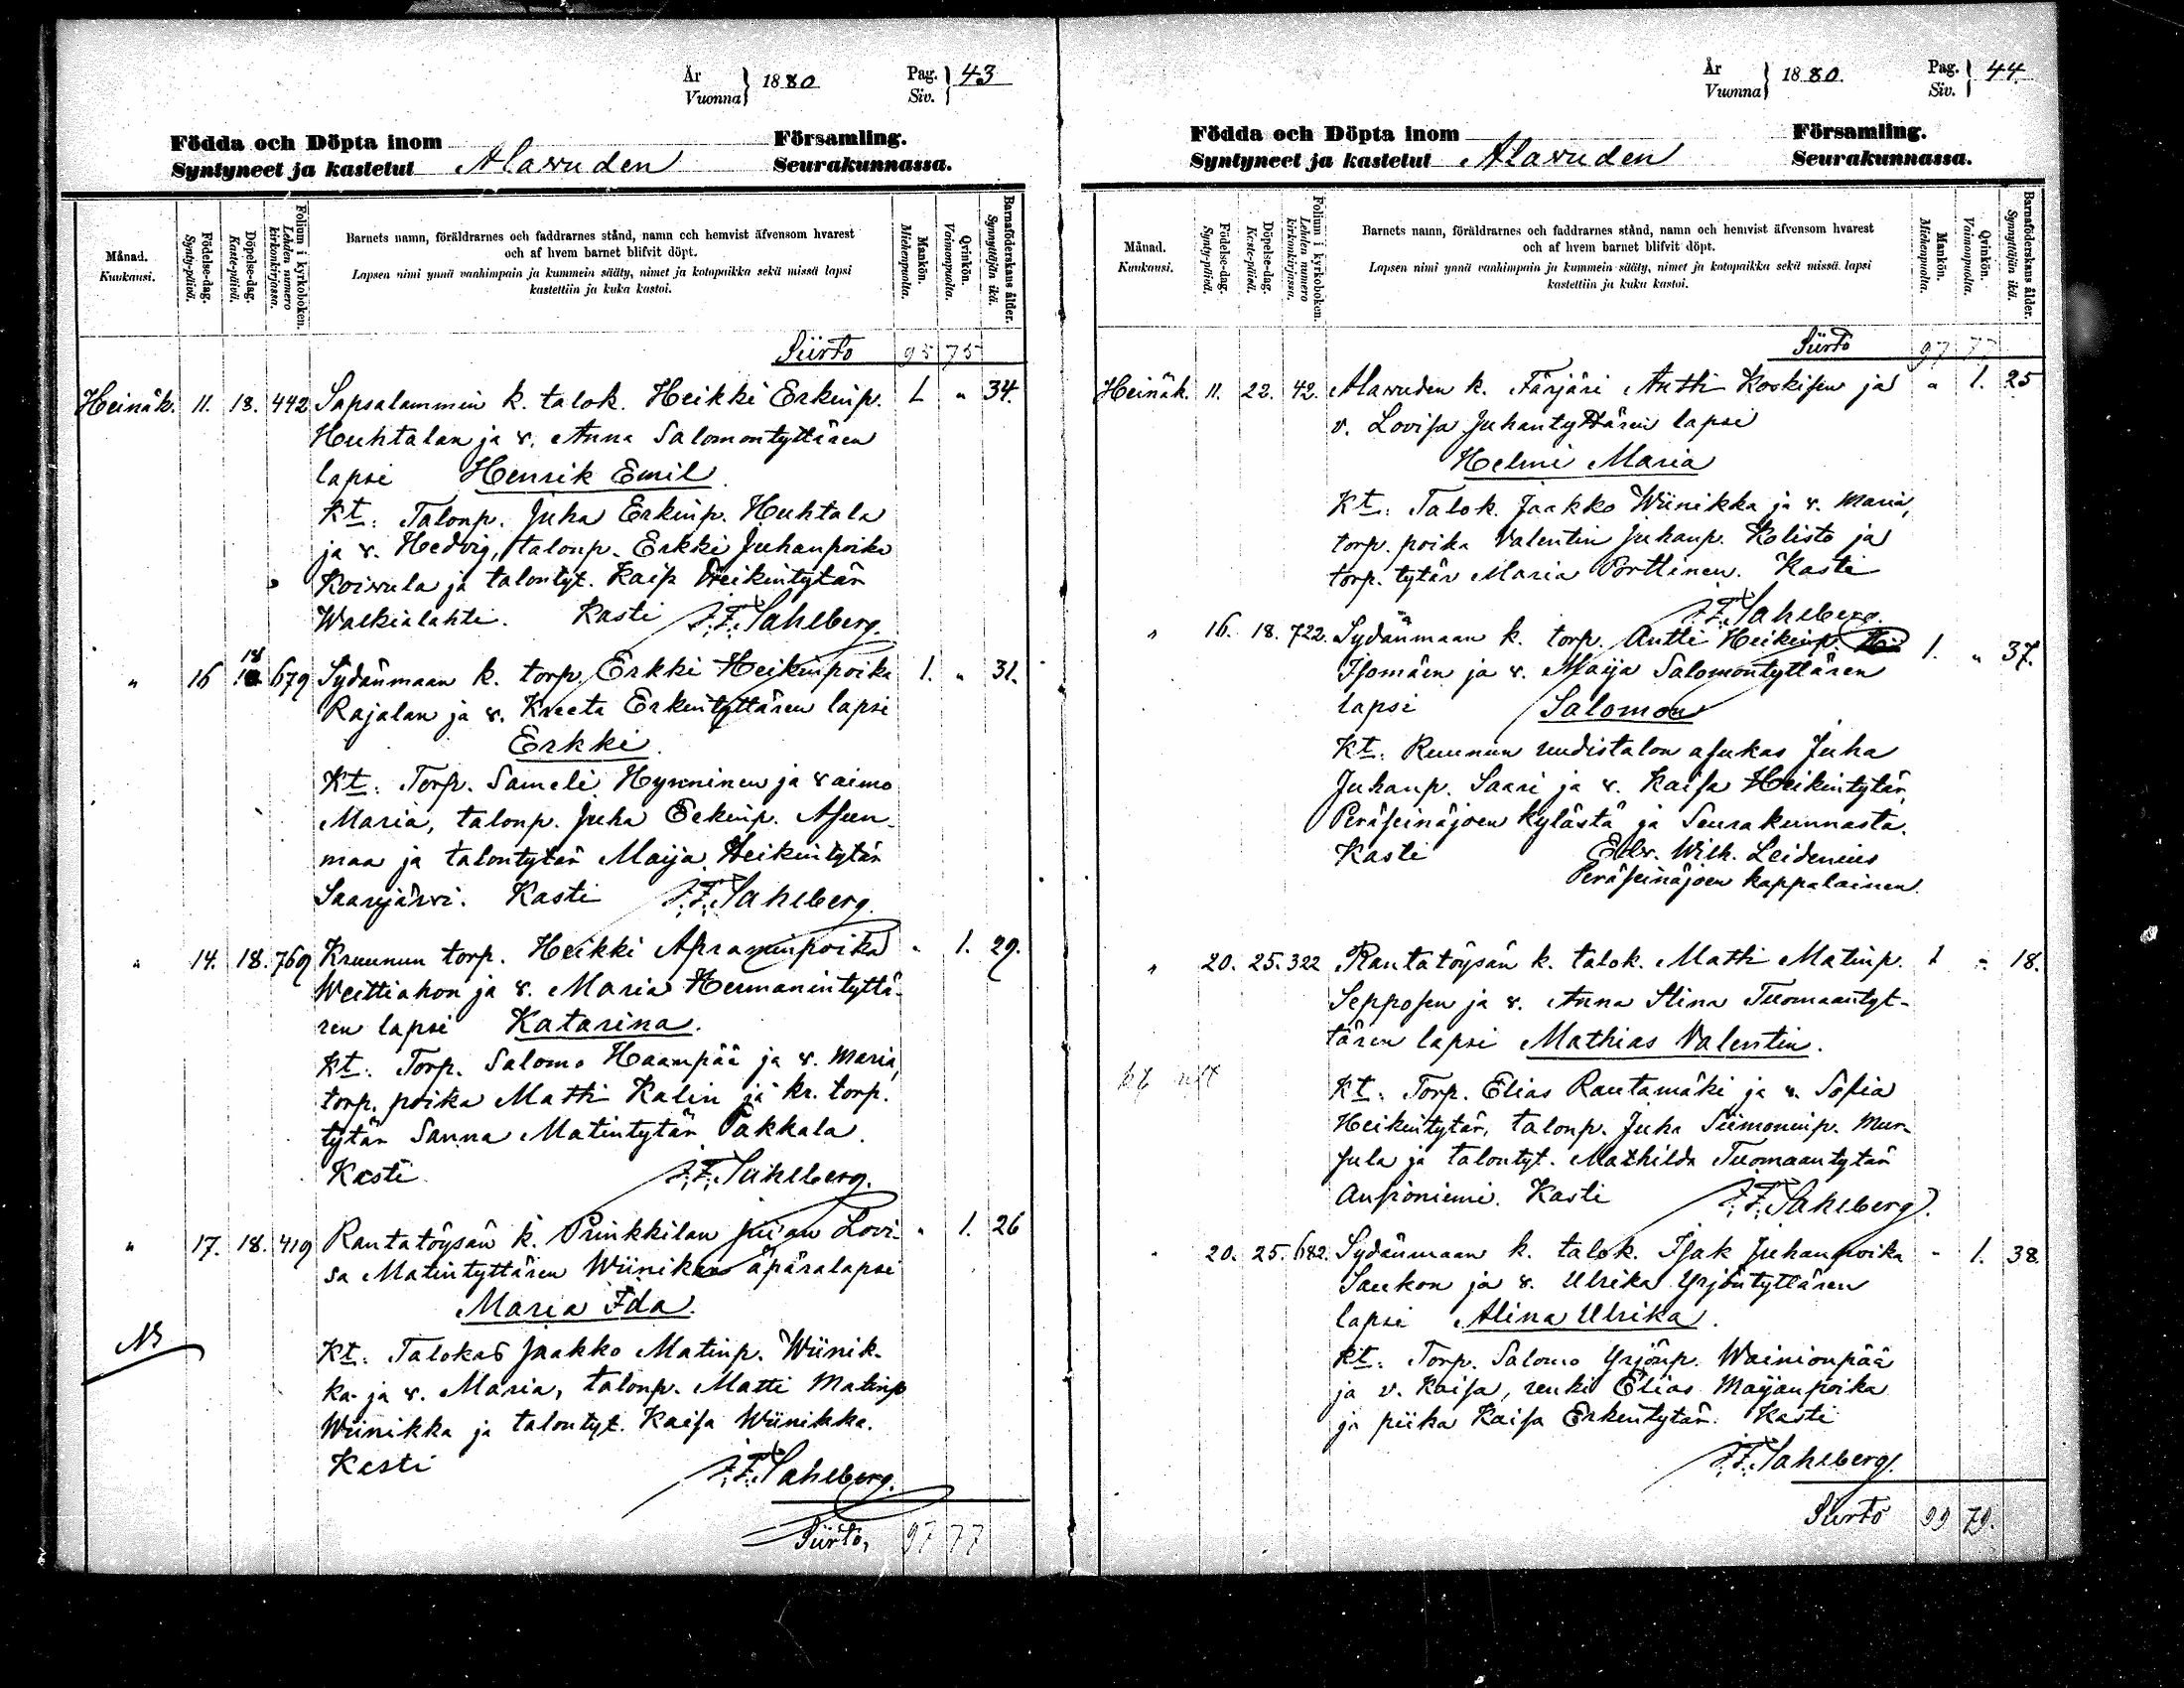 År
Vuonna } 1880 Pag.
Siv. } 43
Födda och Döpta inom Församling.
Syntyneet ja kastetut Alawuden Seurakunnassa.
Månad.
Kuukausi.
Födelse-dag.
Synty-päivä.
Döpelse-dag.
Kaste-päivä.
Folium i kyrkoboken.
Lehden numero
kirkonkirjassa.
Barnets namn, föräldrarnes och faddrarnes stånd, namn och hemvist äfvensom hvarest
och af hvem barnet blifvit döpt.
Lapsen nimi ynnä vanhimpain ja kummein sääty, nimet ja kotopaikka sekä missä lapsi
kastettiin ja kuka kastoi.
Mankön.
Miehenpuolta.
Qvinkön.
Vaimonpuolta.
Barnaföderskans ålder.
Synnyttäjän ikä.
Siirto 95 75
Heinäk. 11. 18. 442 Sapsalammin k. talok. Heikki Erkinp. 1 " 34.
Huhtalan ja v. Anna Salomontyttären
lapsi Henrik Emil.
Kt: Talonp. Juha Erkinp. Huhtala
ja v. Hedvig, talonp. Erkki Juhanpoika
Koivula ja talontyt. Kaisa Heikintytär
Walkialahti. Kasti J.F. Sahlberg.
" 16 18 679 Sydänmaan k. torp. Erkki Heikinpoika 1. " 31.
Rajalan ja v. Kreeta Erkintyttären lapsi
Erkki.
Kt: Torp. Sameli Hynninen ja vaimo
Maria, talonp. Juha Eekinp. Asun-
maa ja talontytär Maija Heikintytär
Saarijärvi. Kasti J.F. Sahlberg.
" 14. 18. 769 Kruunun torp. Heikki Apraminpoika " 1. 29.
Weittiahon ja v. Maria Hermanintyttä-
ren lapsi Katarina.
Kt: Torp. Salomo Haampää ja v. Maria,
torp. poika Matti Kalin ja kr. torp.
tytär Sanna Matintytär Pakkala.
Kasti J.F. Sahlberg.
" 17. 18. 419 Rantatöysän k. Prinkkilan piian Lovi- " 1. 26
sa Matintyttären Wiinikan äpäralapsi
Maria Ida.
NB
Kt: Talokas Jaakko Matinp. Wiinik-
ka ja v. Maria, talonp. Matti Matinp
Wiinikka ja talontyt. Kaisa Wiinikka.
Kasti J.F. Sahlberg.
Siirto, 97 77
År
Vuonna } 1880. Pag.
Siv. } 44.
Födda och Döpta inom Församling.
Syntyneet ja kastetut Alawuden Seurakunnassa.
Månad.
Kuukausi.
Födelse-dag.
Synty-päivä.
Döpelse-dag.
Kaste-päivä.
Folium i kyrkoboken.
Lehden numero
kirkonkirjassa.
Barnets namn, föräldrarnes och faddrarnes stånd, namn och hemvist äfvensom hvarest
och af hvem barnet blifvit döpt.
Lapsen nimi ynnä vanhimpain ja kummein sääty, nimet ja kotopaikka sekä missä lapsi
kastettiin ja kuka kastoi.
Mankön.
Miehenpuolta.
Qvinkön.
Vaimonpuolta.
Barnaföderskans ålder.
Synnyttäjän ikä.
Siirto 97 77
Heinäk. 11. 22. 42. Alawuden k. Färjäri Antti Koskisen ja " 1. 25
v. Lovisa Juhantyttären lapsi
Helmi Maria
Kt: Talok. Jaakko Wiinikka ja v. Maria,
torp. poika Valentin Juhanp. Kolisto ja
torp. tytär Maria Porttinen. Kasti
J.F. Sahlberg.
" 16. 18. 722. Sydänmaan k. torp. Antti Heikinp. 1. " 37.
Isomäen ja v. Maija Salomontyttären
lapsi Salomon
Kt: Ruunun uudistalon asukas Juha
Juhanp. Saari ja v. Kaisa Heikintytär,
Peräseinäjoen kylästä ja Seurakunnasta.
Kasti Edv. Wilh. Leidenius
Peräseinäjoen kappalainen.
" 20. 25. 322 Rantatöysän k. talok. Matti Matinp. 1 " 18.
Sepposen ja v. Anna Stina Tuomaantyt-
tären lapsi Mathias Valentin.
Kt: Torp. Elias Rautamäki ja v. Sofia
Heikintytär, talonp. Juha Siimoninp. Mur-
sula ja talontyt. Mathilda Tuomaantytär
Ansioniemi. Kasti J.F. Sahlberg.
" 20. 25. 682. Sydänmaan k. talok. Isak Juhanpoika " 1. 38.
Saukon ja v. Ulrika Yrjöntyttären
lapsi Alina Ulrika.
Kt: Torp. Salomo Yrjönp. Wainionpää
ja v. Kaisa, renki Elias Maijanpoika
ja piika Kaisa Erkintytär. Kasti
J.F. Sahlberg.
Siirto 99 79.